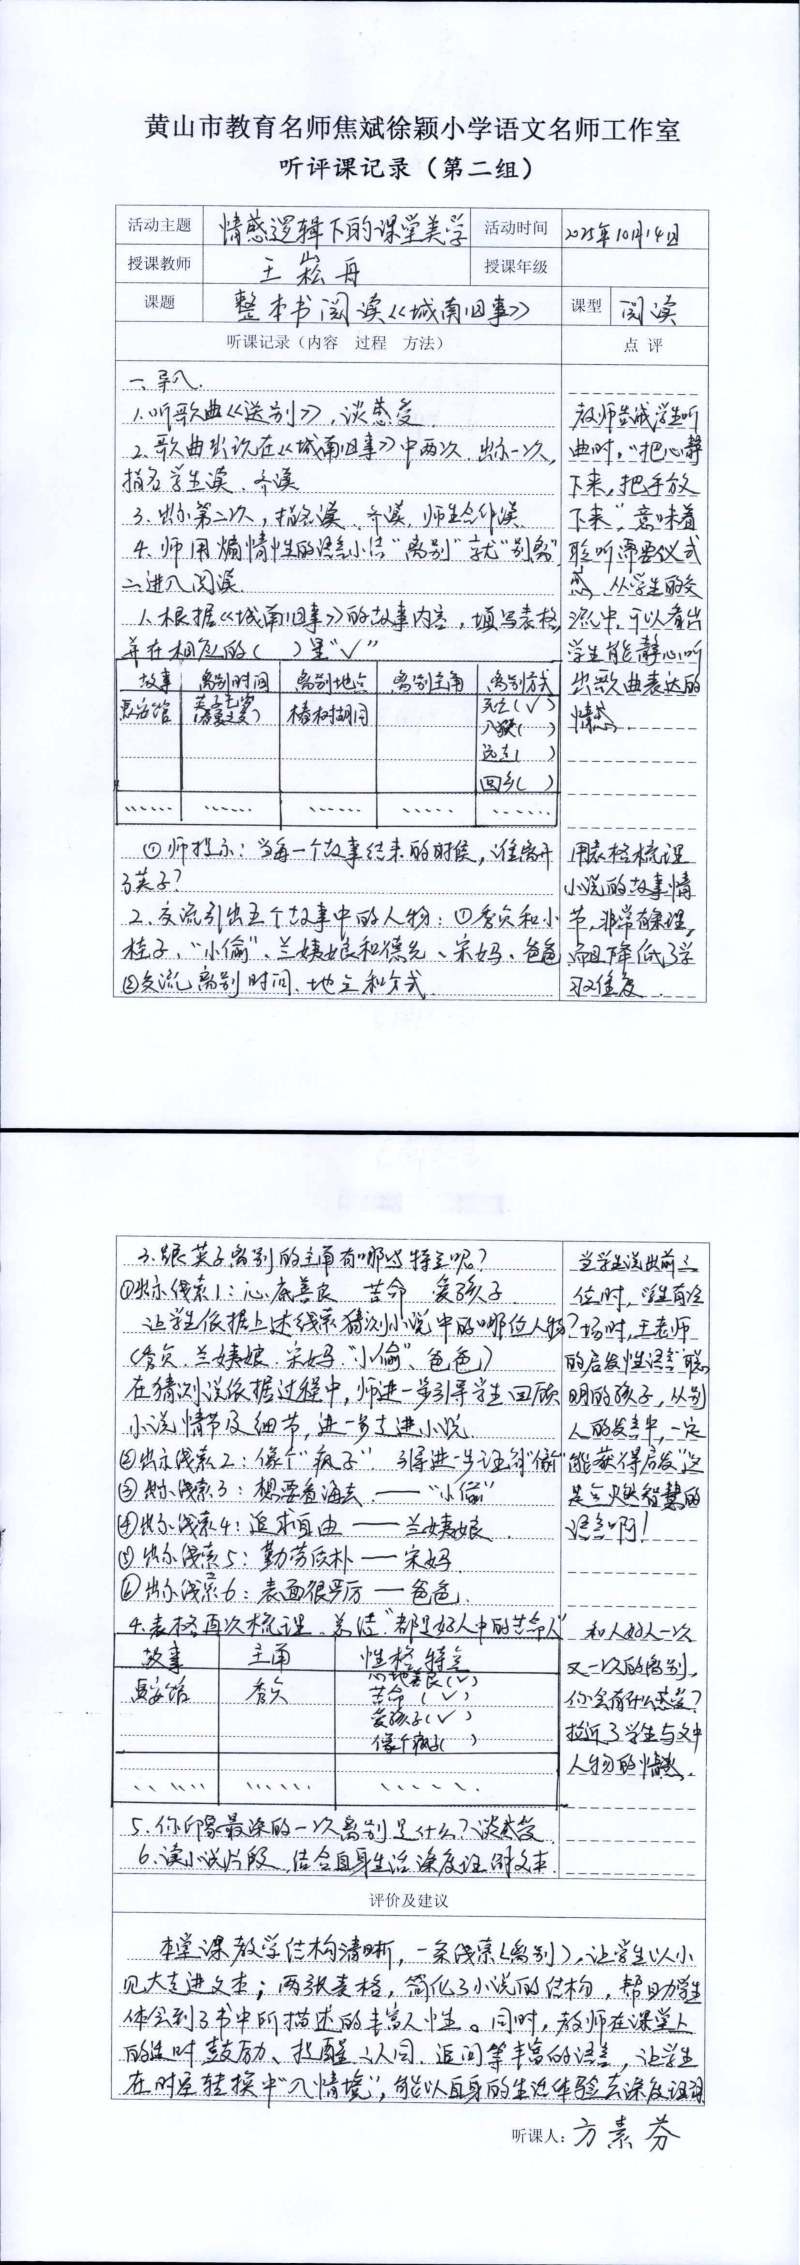 黄山市教育名师焦斌徐颖小学语文名师工作室
听评课记录（第二组）
活动主题 情感逻辑下的课堂美学 活动时间 2025年10月14日
授课教师 王崧舟 授课年级
课题 整本书阅读《城南旧事》 课型 阅读
听课记录（内容 过程 方法） 点 评
一、导入
1.听歌曲《送别》，谈感受
2.歌曲出现在《城南旧事》中两次，出示一次，
指名学生读、齐读
3.出示第二次，指名读、齐读，师生合作读
4.师用煽情性的语言小结"离别"就"别离"
二、进入阅读
1.根据《城南旧事》的故事内容，填写表格，
并在相应的（ ）里"√"
故事 离别时间 离别地点 离别主角 离别方式
惠安馆 椿树胡同 死亡（√）
入狱（ ）
远走（ ）
回乡（ ）
…… …… …… …… ……
①师提示：当每一个故事结束的时候，谁离开
了英子？
2.交流引出五个故事中的人物：①秀贞和小
桂子、"小偷"、兰姨娘和德先、宋妈、爸爸
②交流离别时间、地点和方式
教师告诫学生听
曲时，"把心静
下来，把手放
下来"，意味着
聆听需要仪式
感，从学生的交
流中，可以看出
学生能静心听
出歌曲表达的
情感。
用表格梳理
小说的故事情
节，非常有条理，
而且降低了学
习难度。
3.跟英子离别的主角有哪些特点呢？
①出示线索1：心底善良 苦命 爱孩子
让学生依据上述线索猜测小说中的哪位人物？
（秀贞、兰姨娘、宋妈、"小偷"、爸爸）
在猜测说依据过程中，师进一步引导学生回顾
小说情节及细节，进一步走进小说
②出示线索2：像个"疯子" 引导进一步
③出示线索3：想要看海去——"小偷"
④出示线索4：追求自由——兰姨娘
⑤出示线索5：勤劳质朴——宋妈
⑥出示线索6：表面很严厉——爸爸
4.表格再次梳理、总结"都是好人中的苦命人"
故事 主角 性格特点
惠安馆 秀贞 心地善良（√）
苦命（√）
爱孩子（√）
像个疯子（ ）
…… …… ……
5.你印象最深的一次离别是什么？谈感受
6.读小说片段，结合自身生活深度证 文本
当学生说出前三
位时，学生有冷
场时，王老师
的启发性语言"聪
明的孩子，从别
人的发言中，一定
能获得启发"这
是多么智慧的
语言啊！
和人好人一次
又一次的离别，
你会有什么感受？
拉近了学生与文中
人物的情感。
评价及建议
本堂课教学结构清晰，一条线索（离别），让学生以小
见大走进文本；两张表格，简化了小说的结构，帮助学生
体会到了书中所描述的丰富人性。同时，教师在课堂上
的适时鼓励、提醒、认同、追问等丰富的语言，让学生
在时空转换中"入情境"，能以自身的生活体验去深度
听课人：方素芬